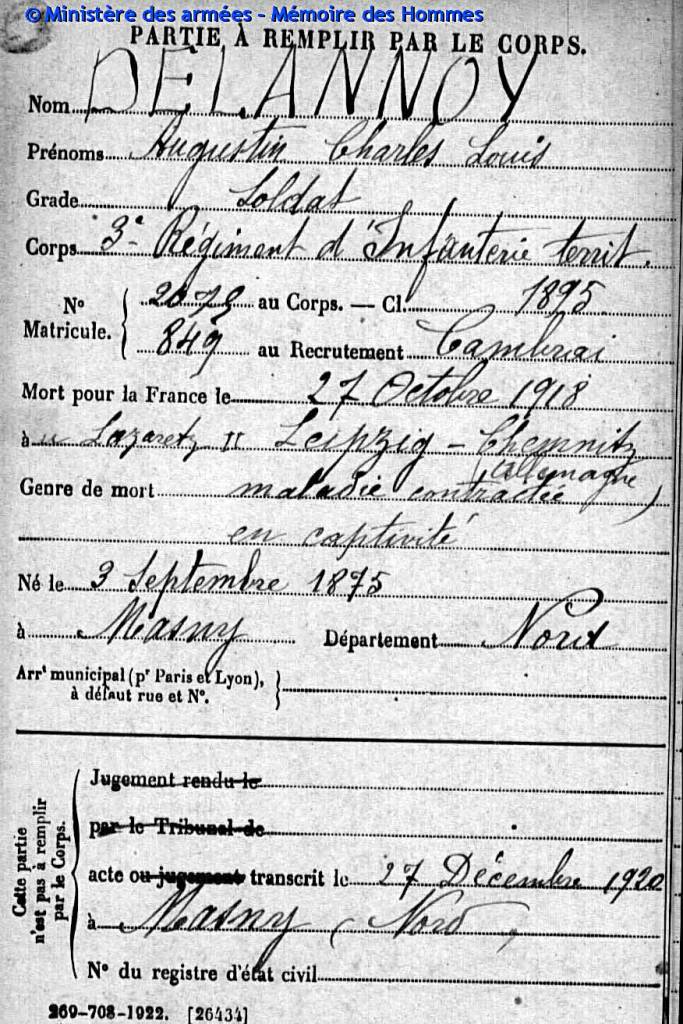 © Ministère des armées - Mémoire des Hommes
PARTIE À REMPLIR PAR LE CORPS.
Nom DELANNOY
Prénoms Augustin Charles Louis
Grade Soldat
Corps 3e Régiment d'Infanterie territ.
N° Matricule. { 2079 au Corps. — Cl. 1895
849 au Recrutement Cambrai
Mort pour la France le 27 Octobre 1918
à Lazarett II Leipzig - Chemnitz
(Allemagne)
Genre de mort maladie contractée
en captivité
Né le 3 Septembre 1875
à Masny Département Nord
Arrt municipal (pr Paris et Lyon),
à défaut rue et N°.
Cette partie n'est pas à remplir par le Corps.
Jugement rendu le
par le Tribunal de
acte ou jugement transcrit le 27 Décembre 1920
à Masny (Nord)
N° du registre d'état civil
269-708-1922. [26434]